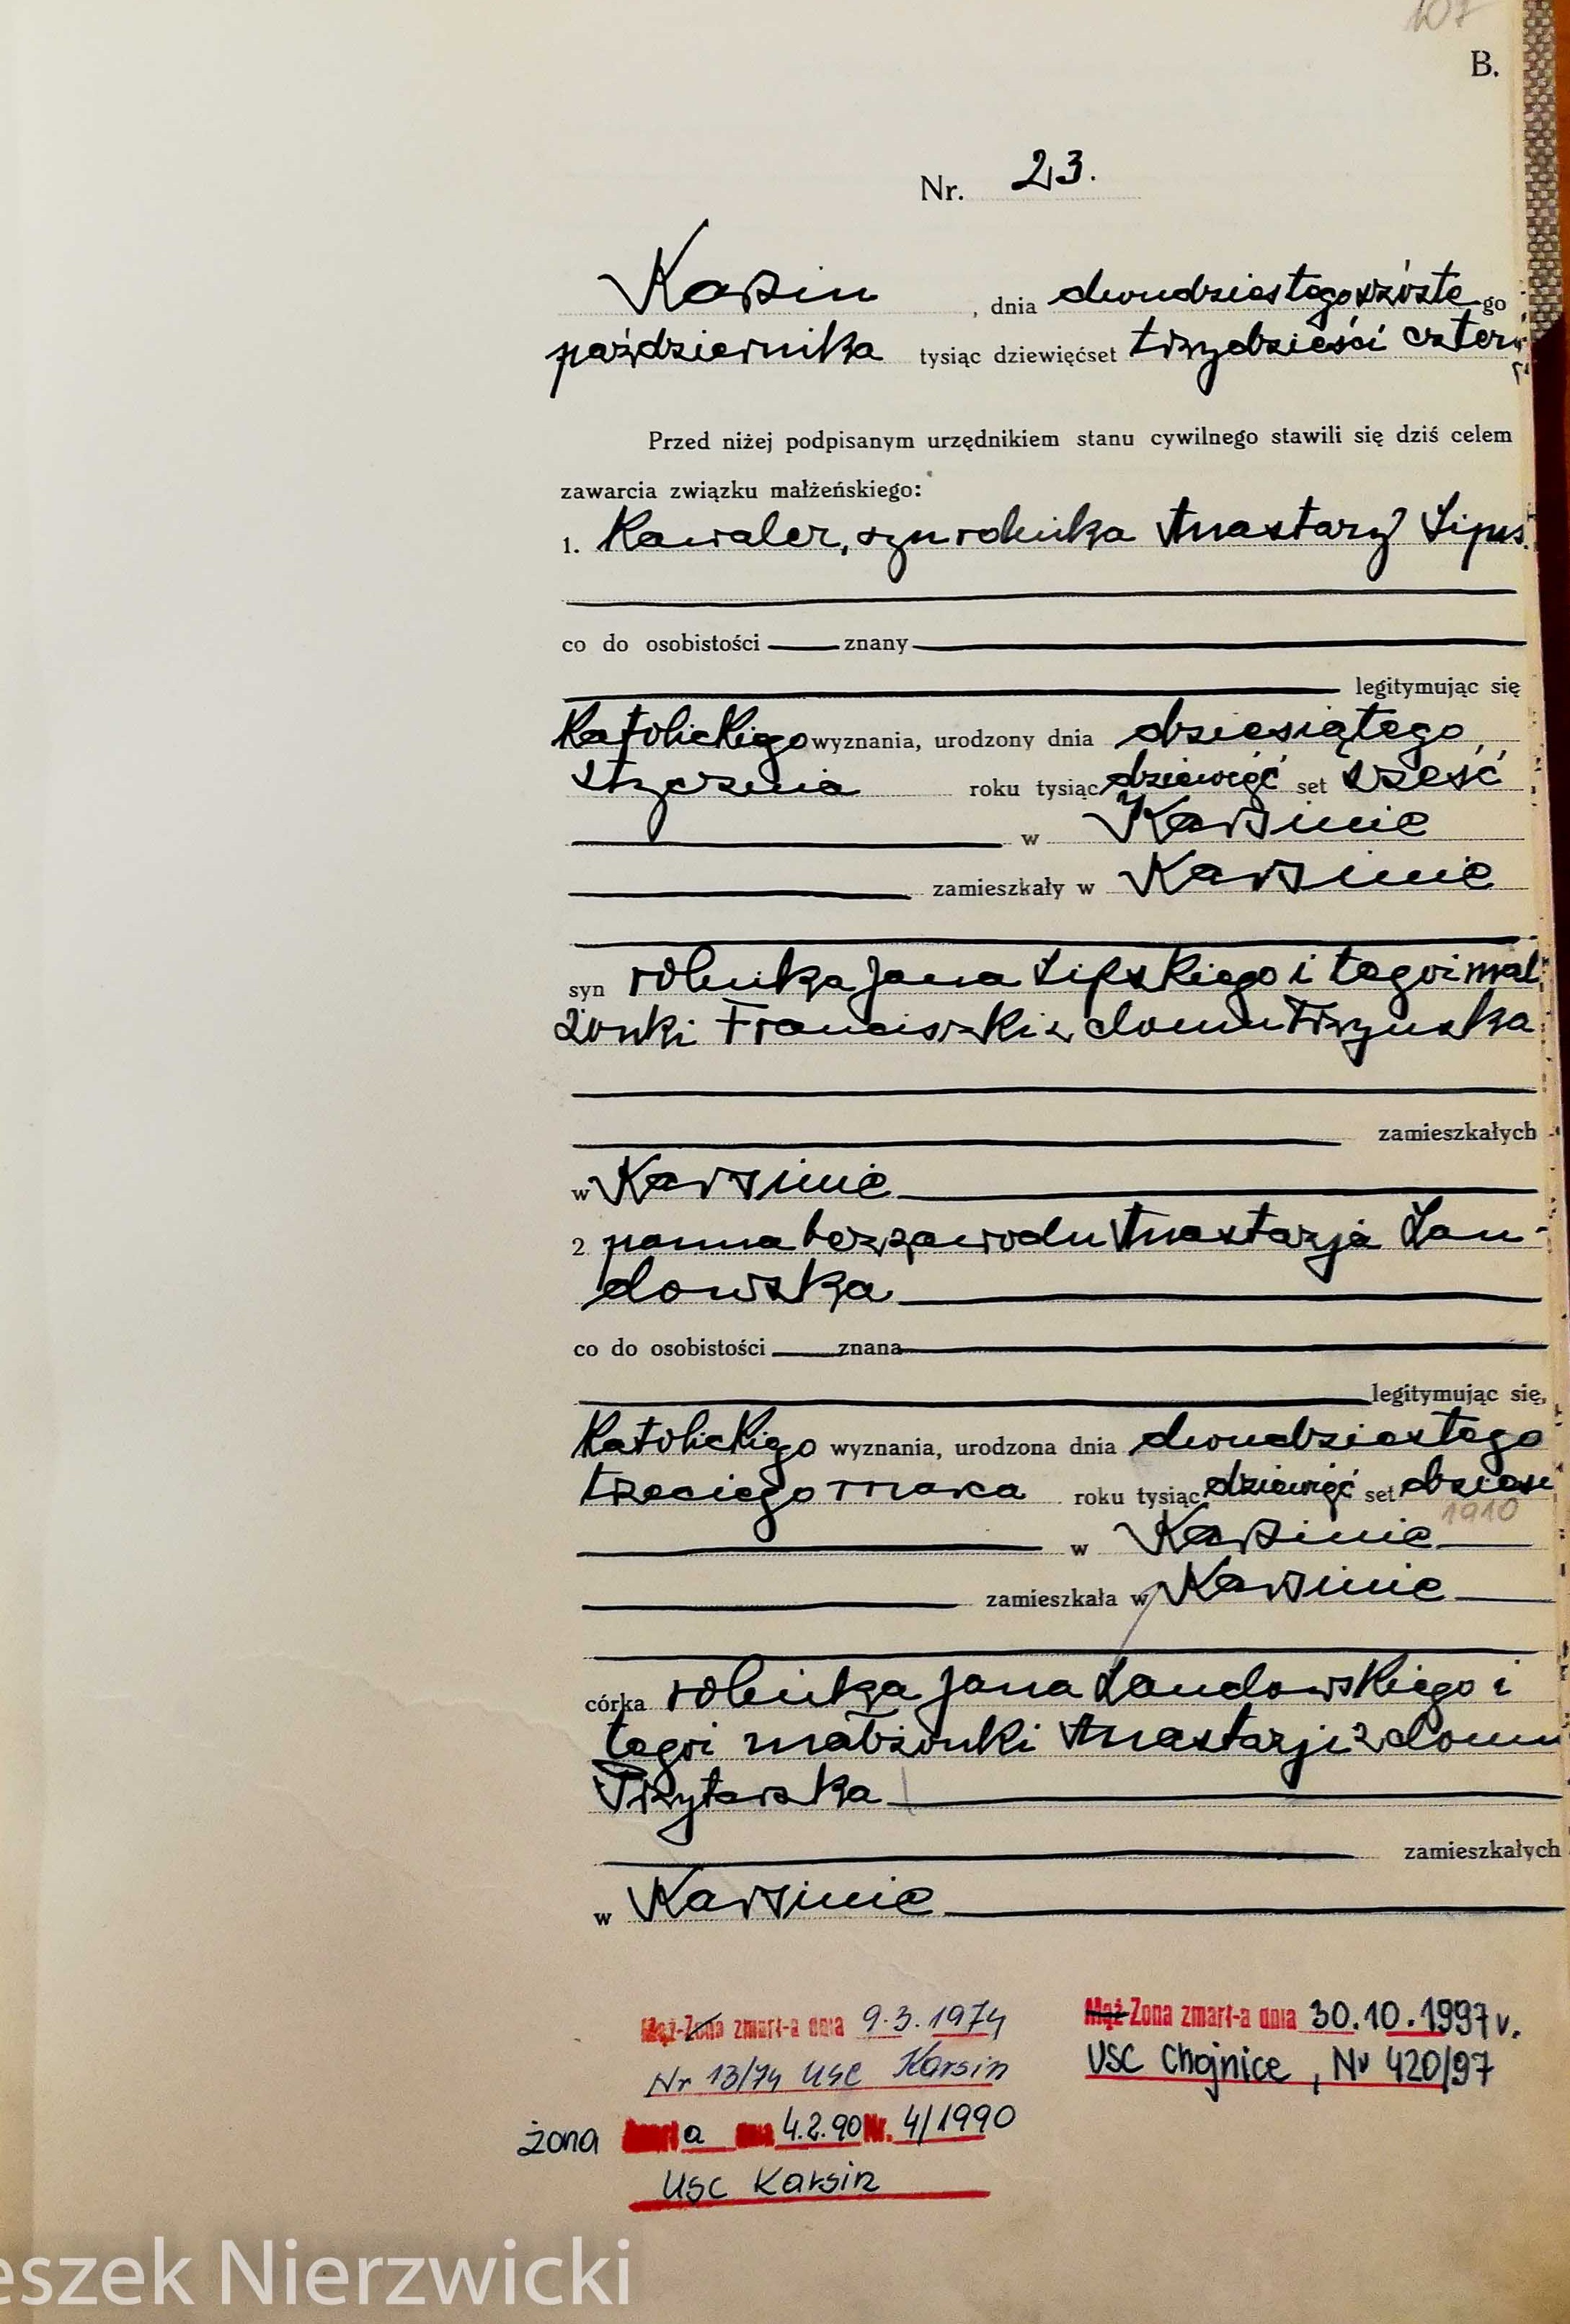 107
B.
Nr. 23.
Karsin , dnia dwudziestego szóste go
października tysiąc dziewięćset trzydzieści cztery
Przed niżej podpisanym urzędnikiem stanu cywilnego stawili się dziś celem
zawarcia związku małżeńskiego:
1. Kawaler, syn rolnika Anastazy Lips
co do osobistości znany
legitymując się
Katolickiego wyznania, urodzony dnia dziesiątego
stycznia roku tysiąc dziewięć set sześć
w Karsinie
zamieszkały w Karsinie
syn rolnika Jana Lipskiego i tegoż mał
żonki Franciszki z domu
zamieszkałych
w Karsinie
2 panna bez zawodu Anastazja Lan-
dowska
co do osobistości znana
legitymując się,
Katolickiego wyznania, urodzona dnia dwudziestego
trzeciego marca roku tysiąc dziewięć set dziesi
1910
w Karsinie
zamieszkała w Karsinie
córka rolnika Jana Landowskiego i
tegoż małżonki Anastazji z domu
zamieszkałych
w Karsinie
Mąż-Żona zmarł-a dnia 9.3.1974
Nr 13/74 USC Karsin
Mąż-Żona zmarł-a dnia 30.10.1997 r.
USC Chojnice, Nr 420/97
żona zmarł a dnia 4.2.90 Nr. 4/1990
USC Karsin
eszek Nierzwicki